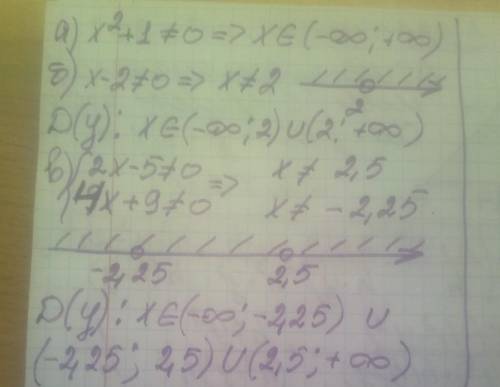 а) x²+1≠0 => x∈(-∞; +∞)
б) x-2≠0 => x≠2
2
D(y): x∈(-∞; 2)∪(2; +∞)
в) {2x-5≠0 => x≠ 2,5
{4x+9≠0 x≠ -2,25
-2,25 2,5
D(y): x∈(-∞; -2,25) ∪
(-2,25; 2,5)∪(2,5; +∞)